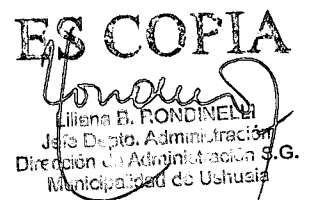 ES COPIA
Liliana B. RONDINELLI
Jefe Depto. Administración
Dirección de Administración S.G.
Municipalidad de Ushuaia